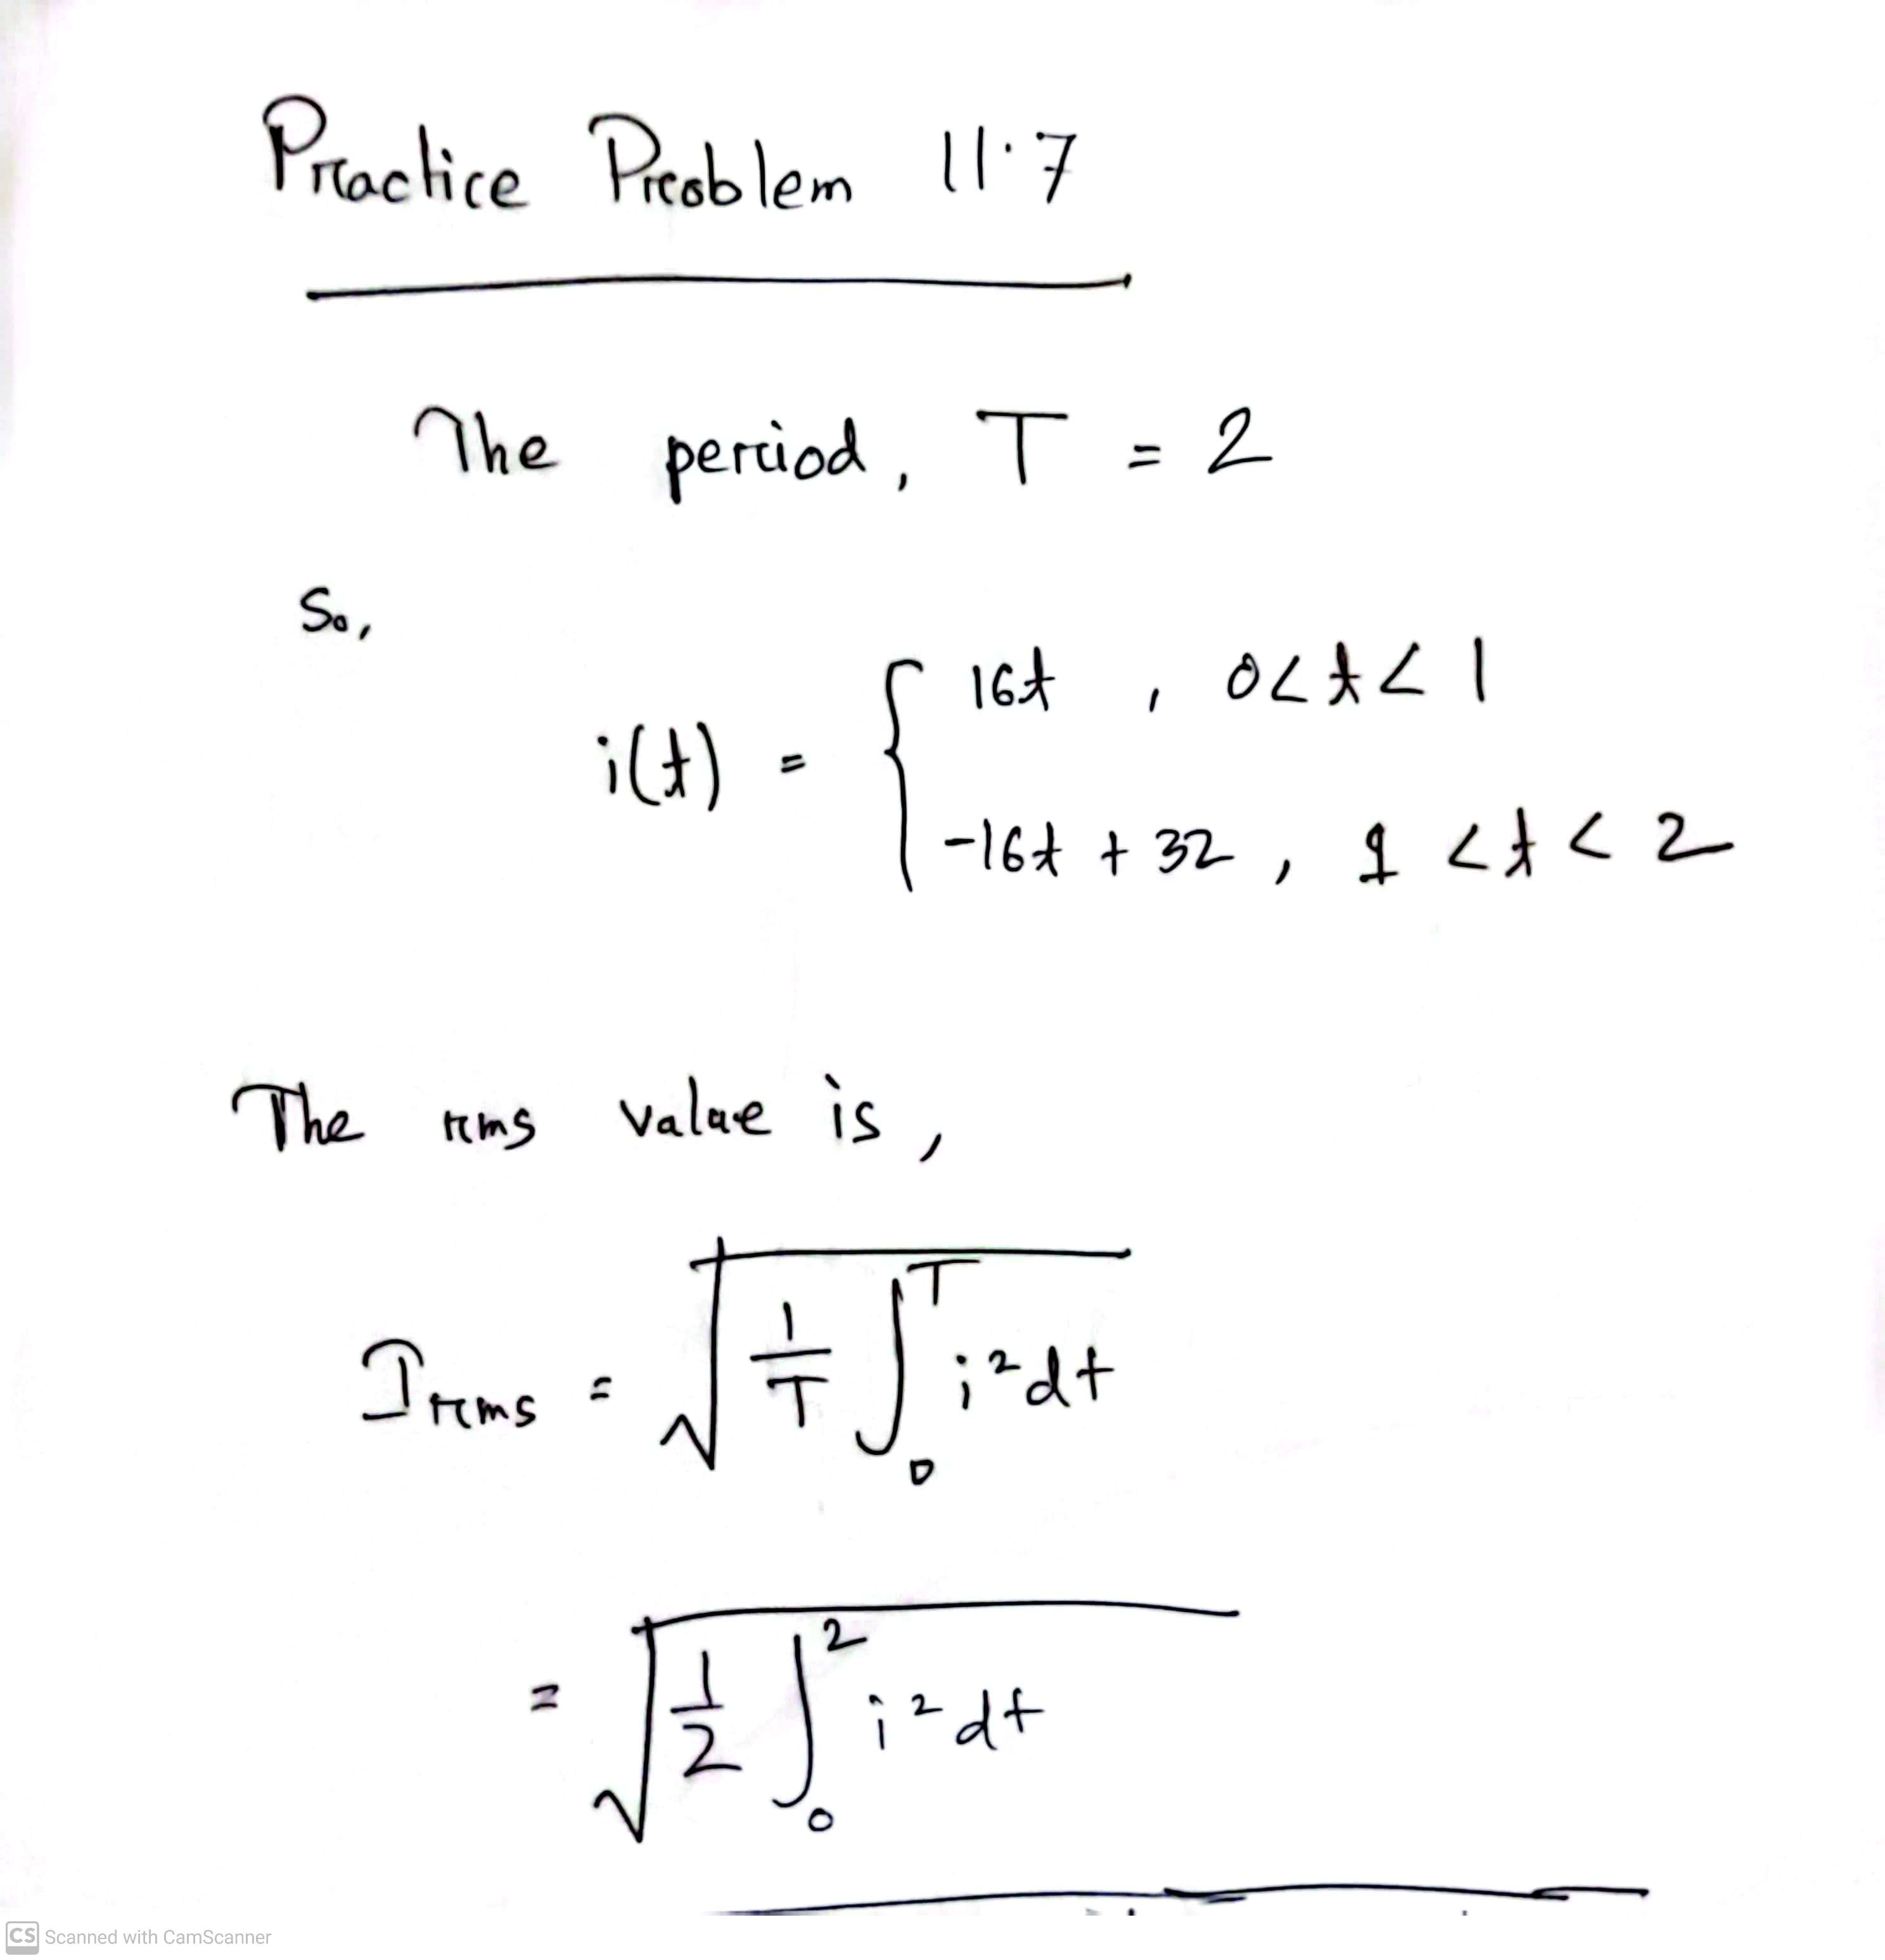 Practice Problem 11.7
The period, T = 2
So,
i(t) = { 16t , 0<t<1
-16t + 32 , 1 <t < 2
The rms value is ,
Irms = √(1/T ∫₀ᵀ i² dt)
= √(1/2 ∫₀² i² dt)
CS Scanned with CamScanner